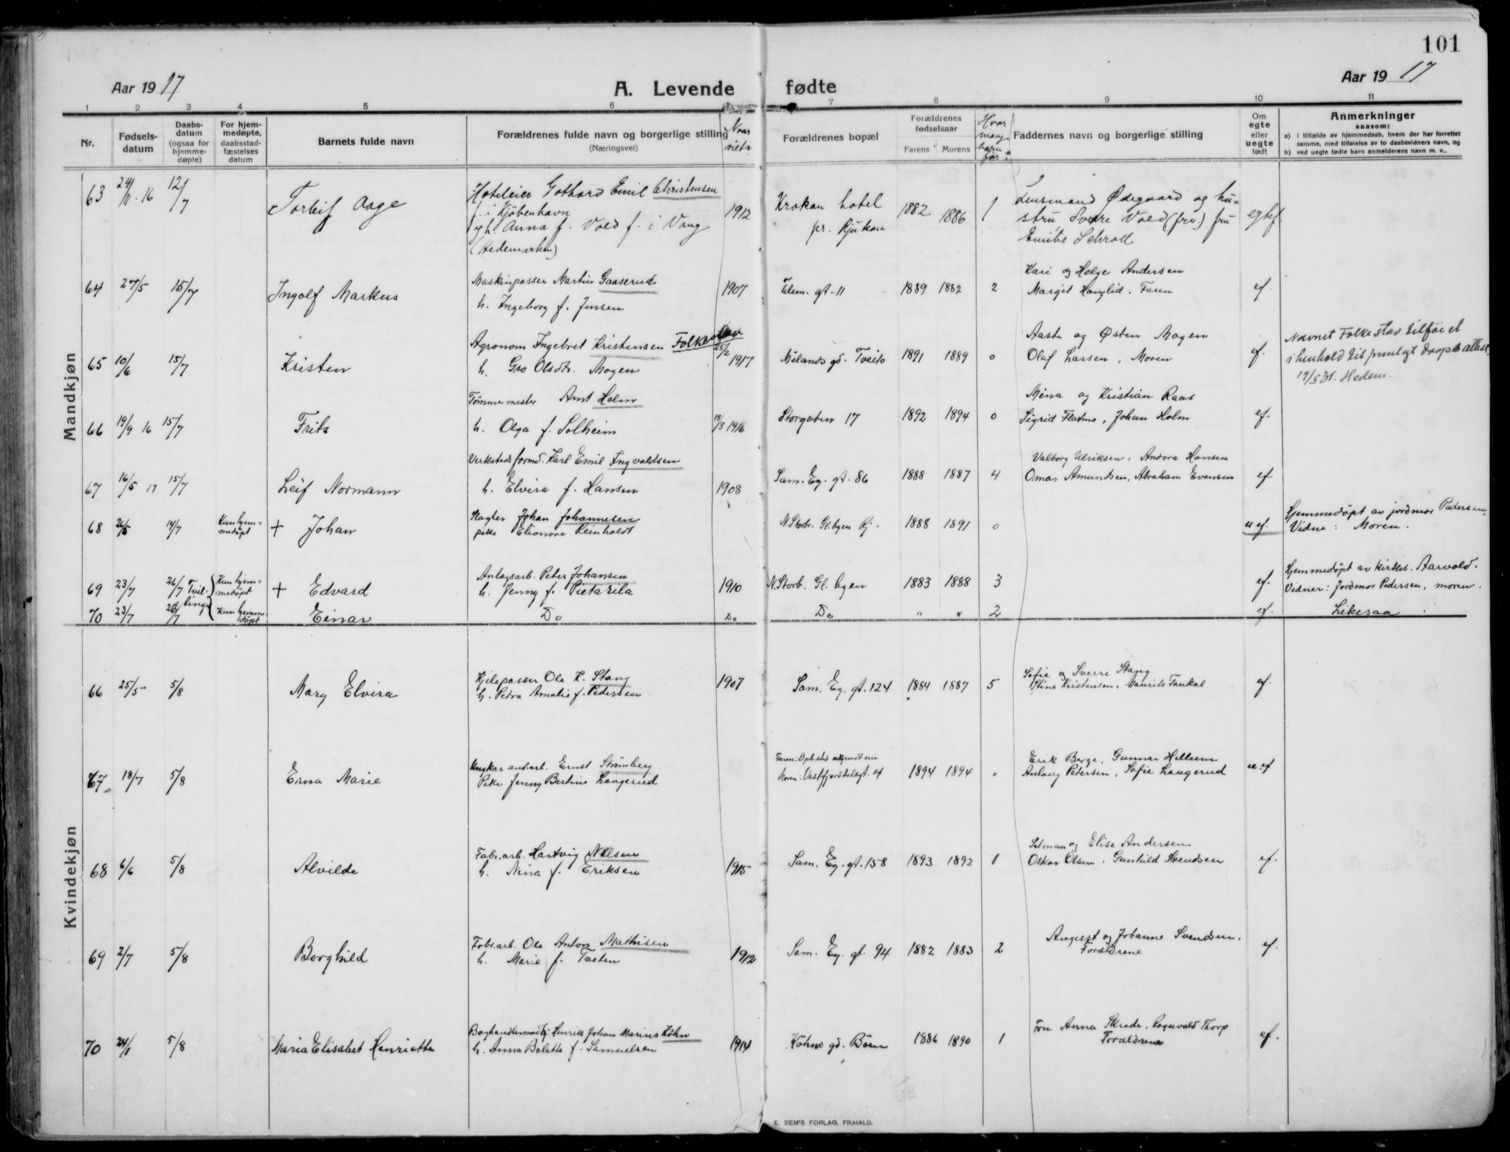 101
Aar 1917
A. Levende fødte
Aar 1917
1 2 3 4 5 6 7 8 9 10 11
Nr.
Fødsels-
datum
Daabs-
datum
(ogsaa for
hjemme-
døpte)
For hjem-
medøpte,
daabsstad-
fæstelses
datum
Barnets fulde navn
Forældrenes fulde navn og borgerlige stilling
(Næringsvei)
Naar
viet
Forældrenes bopæl
Forældrenes
fødselsaar
Farens Morens
Hvor
mange
barn
før
Faddernes navn og borgerlige stilling
Om
egte
eller
uegte
født
Anmerkninger
saasom:
a) i tilfælde av hjemmedaab, hvem der har forrettet
samme, med tilføielse av to daabsvidners navn, og
b) ved uegte fødte barn anmelderens navn m. v.
Mandkjøn
63 24/11 16 12/7 Torleif Aage
Hoteleier Gothard Emil Christensen
f. i Kjøbenhavn
og h. Anna f. Vold f. i Vang
(Hedemarken)
1912 Krokan hotel
pr. Rjukan
1882 1886 1
Lensmand Ødegaard og hu-
stru Sverre Vold (frv.) fru
Emilie Schroll
egtef.
64 27/5 15/7 Ingolf Markus
Maskinpasser Martin Gaaserud
h. Ingeborg f. Jensen
1907 Elem. gt. 11 1889 1882 2
Kari og Helge Andersen
Margit Hauglid. Faren
ef.
65 10/6 15/7 Kristen
Agronom Ingebret Kristensen Folkestad
h. Gro Olsdtr. Mogen
25/2 1917 Mælands gd. Tveito 1891 1889 0
Aaste og Østen Mogen
Olaf Larsen, Moren
ef.
Navnet Folkestad tilføiet
i henhold til fremlagt daapsattest
19/5 31. Hedem.
66 19/9 16 15/7 Frits
Tømmermester Arnt Holm
h. Olga f. Solheim
18/3 1916 Storgaten 17 1892 1894 0
Mina og Kristian Raas
Sigrid Flatmo, Johan Holm
ef.
67 16/5 17 15/7 Leif Normann
Verkstedsformd. Karl Emil Ingvaldsen
h. Elvira f. Hansen
1908 Sam. Eg. gt. 86 1888 1887 4
Valborg Ulriksen, Andora Hansen
Omar Amundsen, Abraham Evensen
ef
68 14/7 Kun hjem-
medøpt + Johan
Slagter Johan Johannesen
pike Elionora Reinholdt
N. Storb. Gl. byen Rj. 1888 1891 0
u ef.
Hjemmedøpt av jordmor Pedersen.
Vidne: Moren.
69 23/7 26/7 Tvil-
linger Kun hjem-
medøpt + Edvard
Anlægsarb. Peter Johansen
h. Jenny f. Pietarila
1910 N. Storb. Gl. byen 1883 1888 3
ef.
Hjemmedøpt av kirkes. Aarvold.
Vidner: Jordmor Pedersen, moren.
70 23/7 26/7 Kun hjem-
døpt Einar
Do Do Do " " 2
ef. Likesaa.
Kvindekjøn
66 25/5 5/8 Mary Elvira
Kjelepasser Ole K. Stang
h. Petra Amalie f. Pedersen
1907 Sam. Eg. gt. 124 1884 1887 5
Sofie og Sverre Stang
Stine Kristensen, Maurits Taukal
ef.
67 18/7 5/8 Erna Marie
Ernst Strømberg
Pike Jenny Bertine Laagerud
Moren: Vestfjorddalsgt. 4 1894 1894
Erik Borge, Gunnar Hilleren
Aslaug Petersen, Sofie Laugerud
u ef
68 6/6 5/8 Alvilde
Fabr.arb. Hartvig Nilsen
h. Nina f. Eriksen
1915 Sam. Eg. gt. 158 1893 1892 1
Selman og Elise Andersen
Oskar Olsen, Gunhild Svendsen
ef.
69 2/7 5/8 Borghild
Fabr.arb. Ole Anton Mathisen
h. Marie f. Tveten
1912 Sam. Eg. gt. 94 1882 1883 2
August og Johanne Svendsen.
Forældrene
ef.
70 24/1 5/8 Maria Elisabet Henriette
Boghandlermedhj. Henrik Johan Marius Køhn
h. Anna Bolette f. Samuelsen
1914 Køhns gd. Bøen 1886 1890 1
Fru Anna Skrede, Ragnvald Thorp
Forældrene
ef.
E. SEM'S FORLAG, FR.HALD.